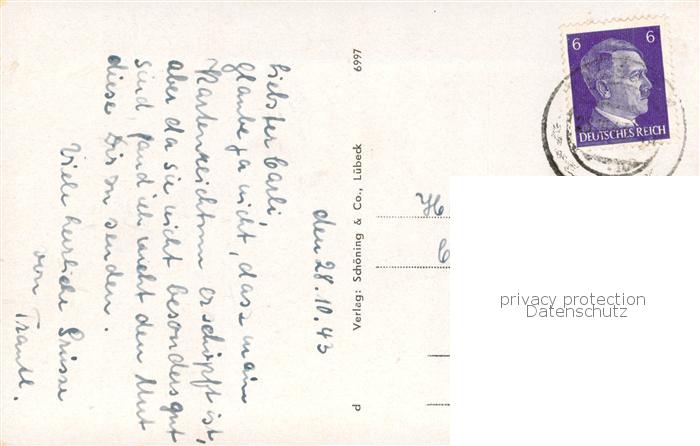 den 28.10.43
Liebster Carli,
glaube ja nicht, dass mein
Kartenreichtum erschöpft ist,
aber da sie nicht besonders gut
sind, fand ich nicht den Mut
diese Dir zu senden.
Viele herzliche Grüsse
von Trautl.
6997
Verlag: Schöning & Co., Lübeck
P
6 6
DEUTSCHES REICH
privacy protection
Datenschutz